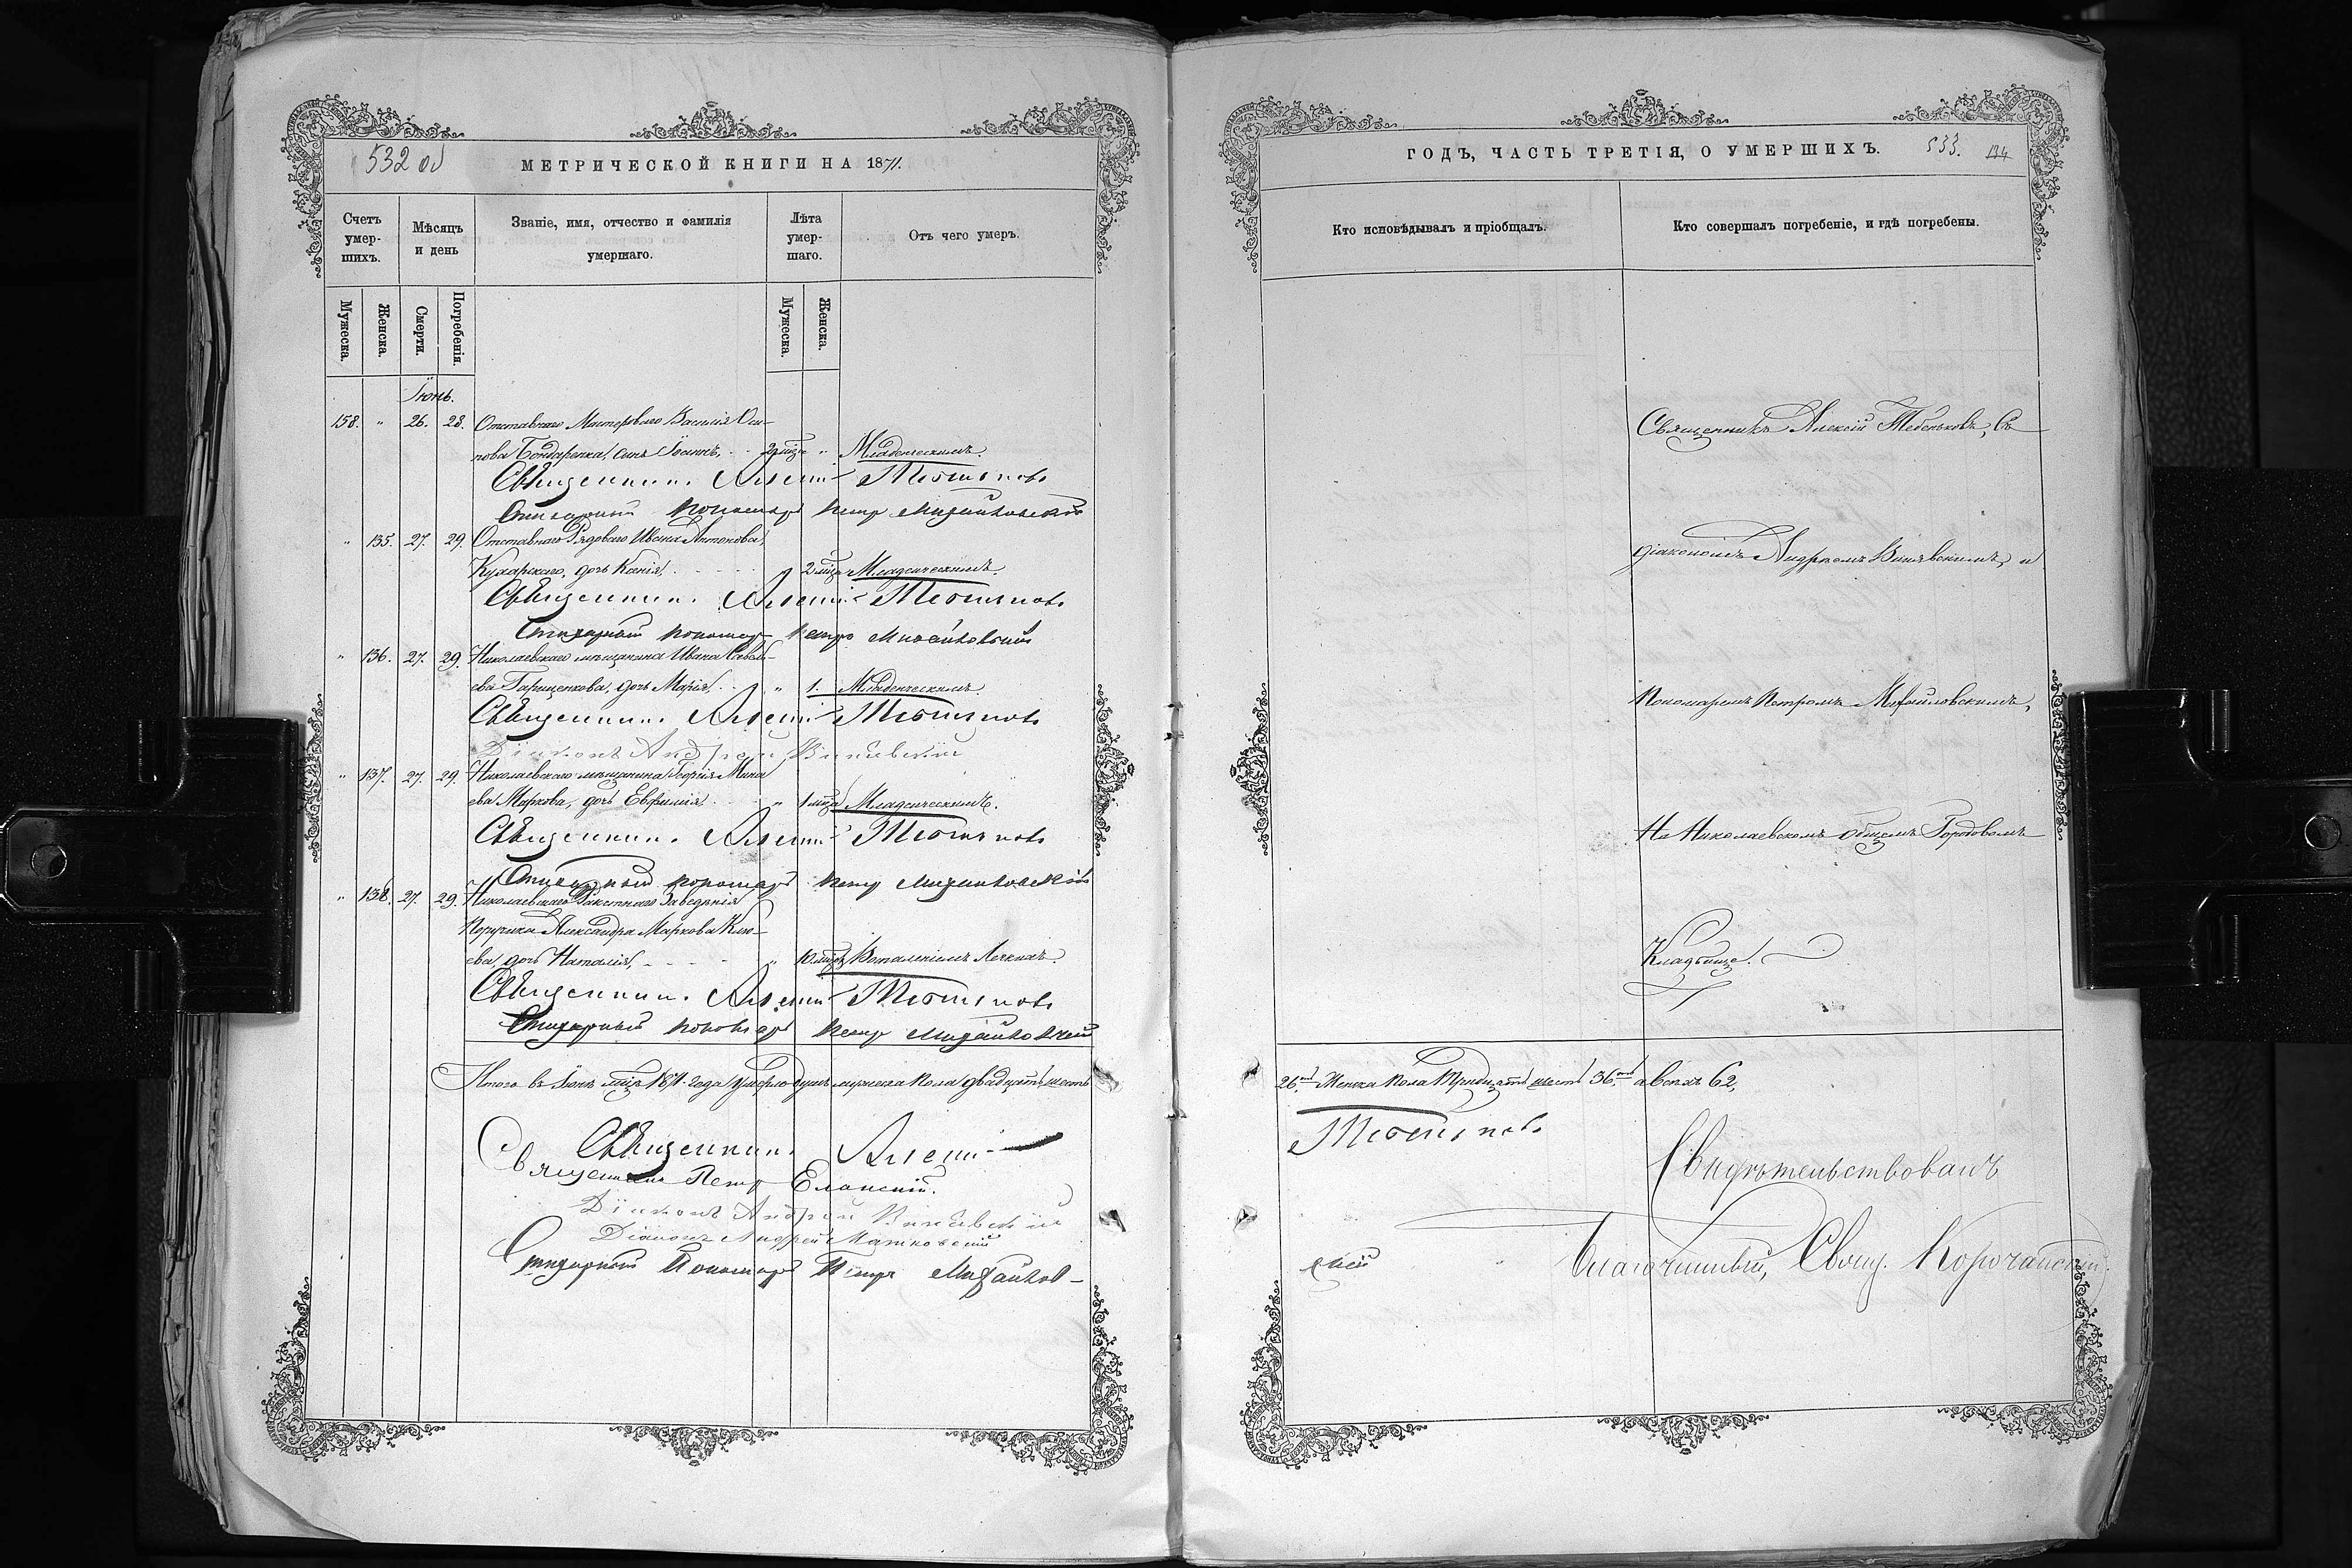 532 об
МЕТРИЧЕСКОЙ КНИГИ НА 1871.
Счетъ умер-шихъ.
Мѣсяцъ и день
Званіе, имя, отчество и фамилія умершаго.
Лѣта умер-шаго.
Отъ чего умеръ.
Мужеска.
Женска.
Смерти.
Погребенія.
Мужеска.
Женска.
Іюнь.
158. " 26. 28. Отставнаго Мастероваго Василія Оси-
пова Бондаренка, сынъ Іоаннъ, 2 мца " Младенческимъ.
Священникъ Алексій
Стихарный пономарь Петръ Михайловскій
" 135. 27. 29. Отставнаго Рядоваго Ивана Антонова
Кухарскаго, дочь Ксенія, 2 мца Младенческимъ.
Священникъ Алексій
Стихарный пономарь Петръ Михайловскій
" 136. 27. 29. Николаевскаго мѣщанина Ивана Савель-
ева Гарищенкова, дочь Марія, " 1. Младенческимъ.
Священникъ Алексій
Діаконъ Андрей
" 137. 27. 29. Николаевскаго мѣщанина Георгія Мина
ева Маркова, дочь Евфимія " 1 мца Младенческимъ.
Священникъ Алексій
Стихарный пономарь Петръ Михайловскій
" 138. 27. 29. Николаевскаго Ракетнаго Заведенія
Поручика Александра Маркова Клю-
ева, дочь Наталія, " 10 мцъ Воспаленіемъ Легкихъ
Священникъ Алексій
Стихарный пономарь Петръ Михайловскій
Итого въ Іюнѣ мцѣ 1871 года умерло душъ мужеска пола двадцать шесть
Священникъ Алексій
Священникъ Петръ Еланскій.
Діаконъ Андрей
Діаконъ Андрей Матковскій
Стихарный Пономарь Петръ Михайлов-
ГОДЪ, ЧАСТЬ ТРЕТІЯ, О УМЕРШИХЪ.
533. 134
Кто исповѣдывалъ и пріобщалъ.
Кто совершалъ погребеніе, и гдѣ погребены.
Священникъ Алексій Съ
діакономъ Андреемъ и
Пономаремъ Петромъ Михайловскимъ,
На Николаевскомъ общемъ Городовомъ
Кладбище.
26. Женска Пола Тридцать шесть 36. а всехъ 62.
скій
Свидѣтельствовалъ
Благочинный, Свящ. Корочанскій.